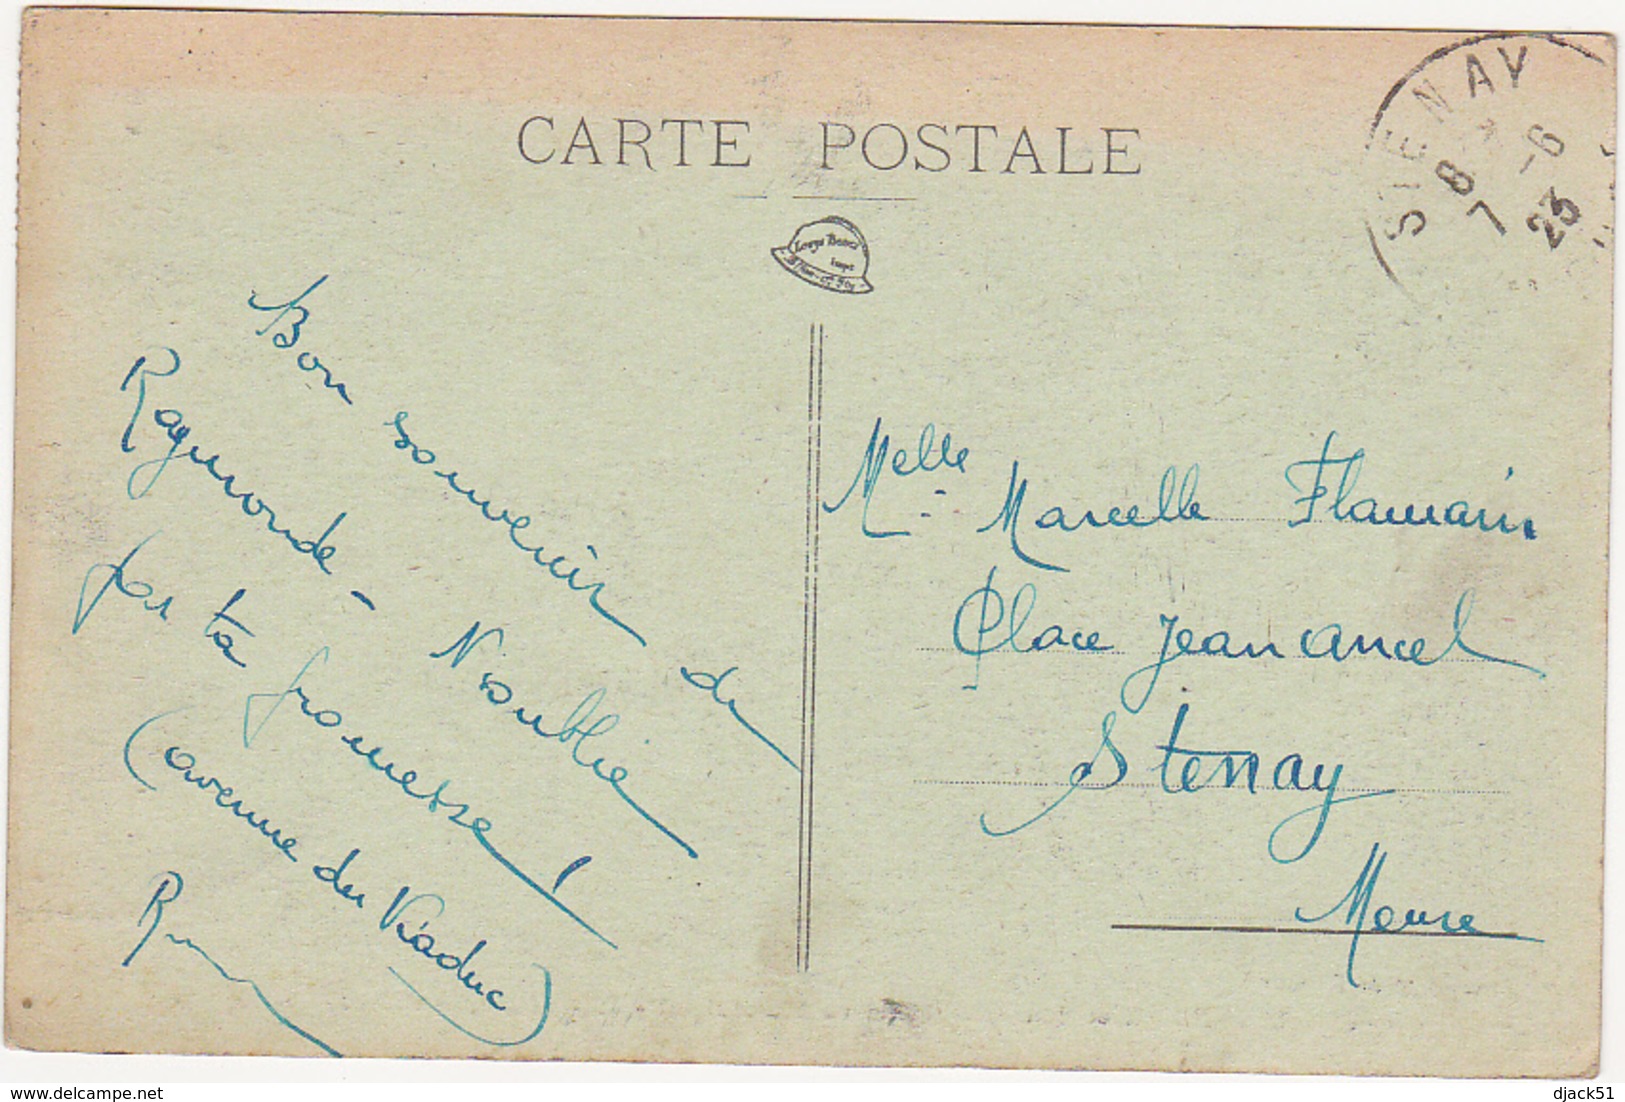 CARTE POSTALE
STENAY
8
7 -6
23
Bon souvenir de
Raymonde - N'oublie
pas ta promesse !
(avenue du Viaduc)
R
Melle Marcelle Flamain
Place Jean ancel
Stenay
Meuse
www.delcampe.net
djack51